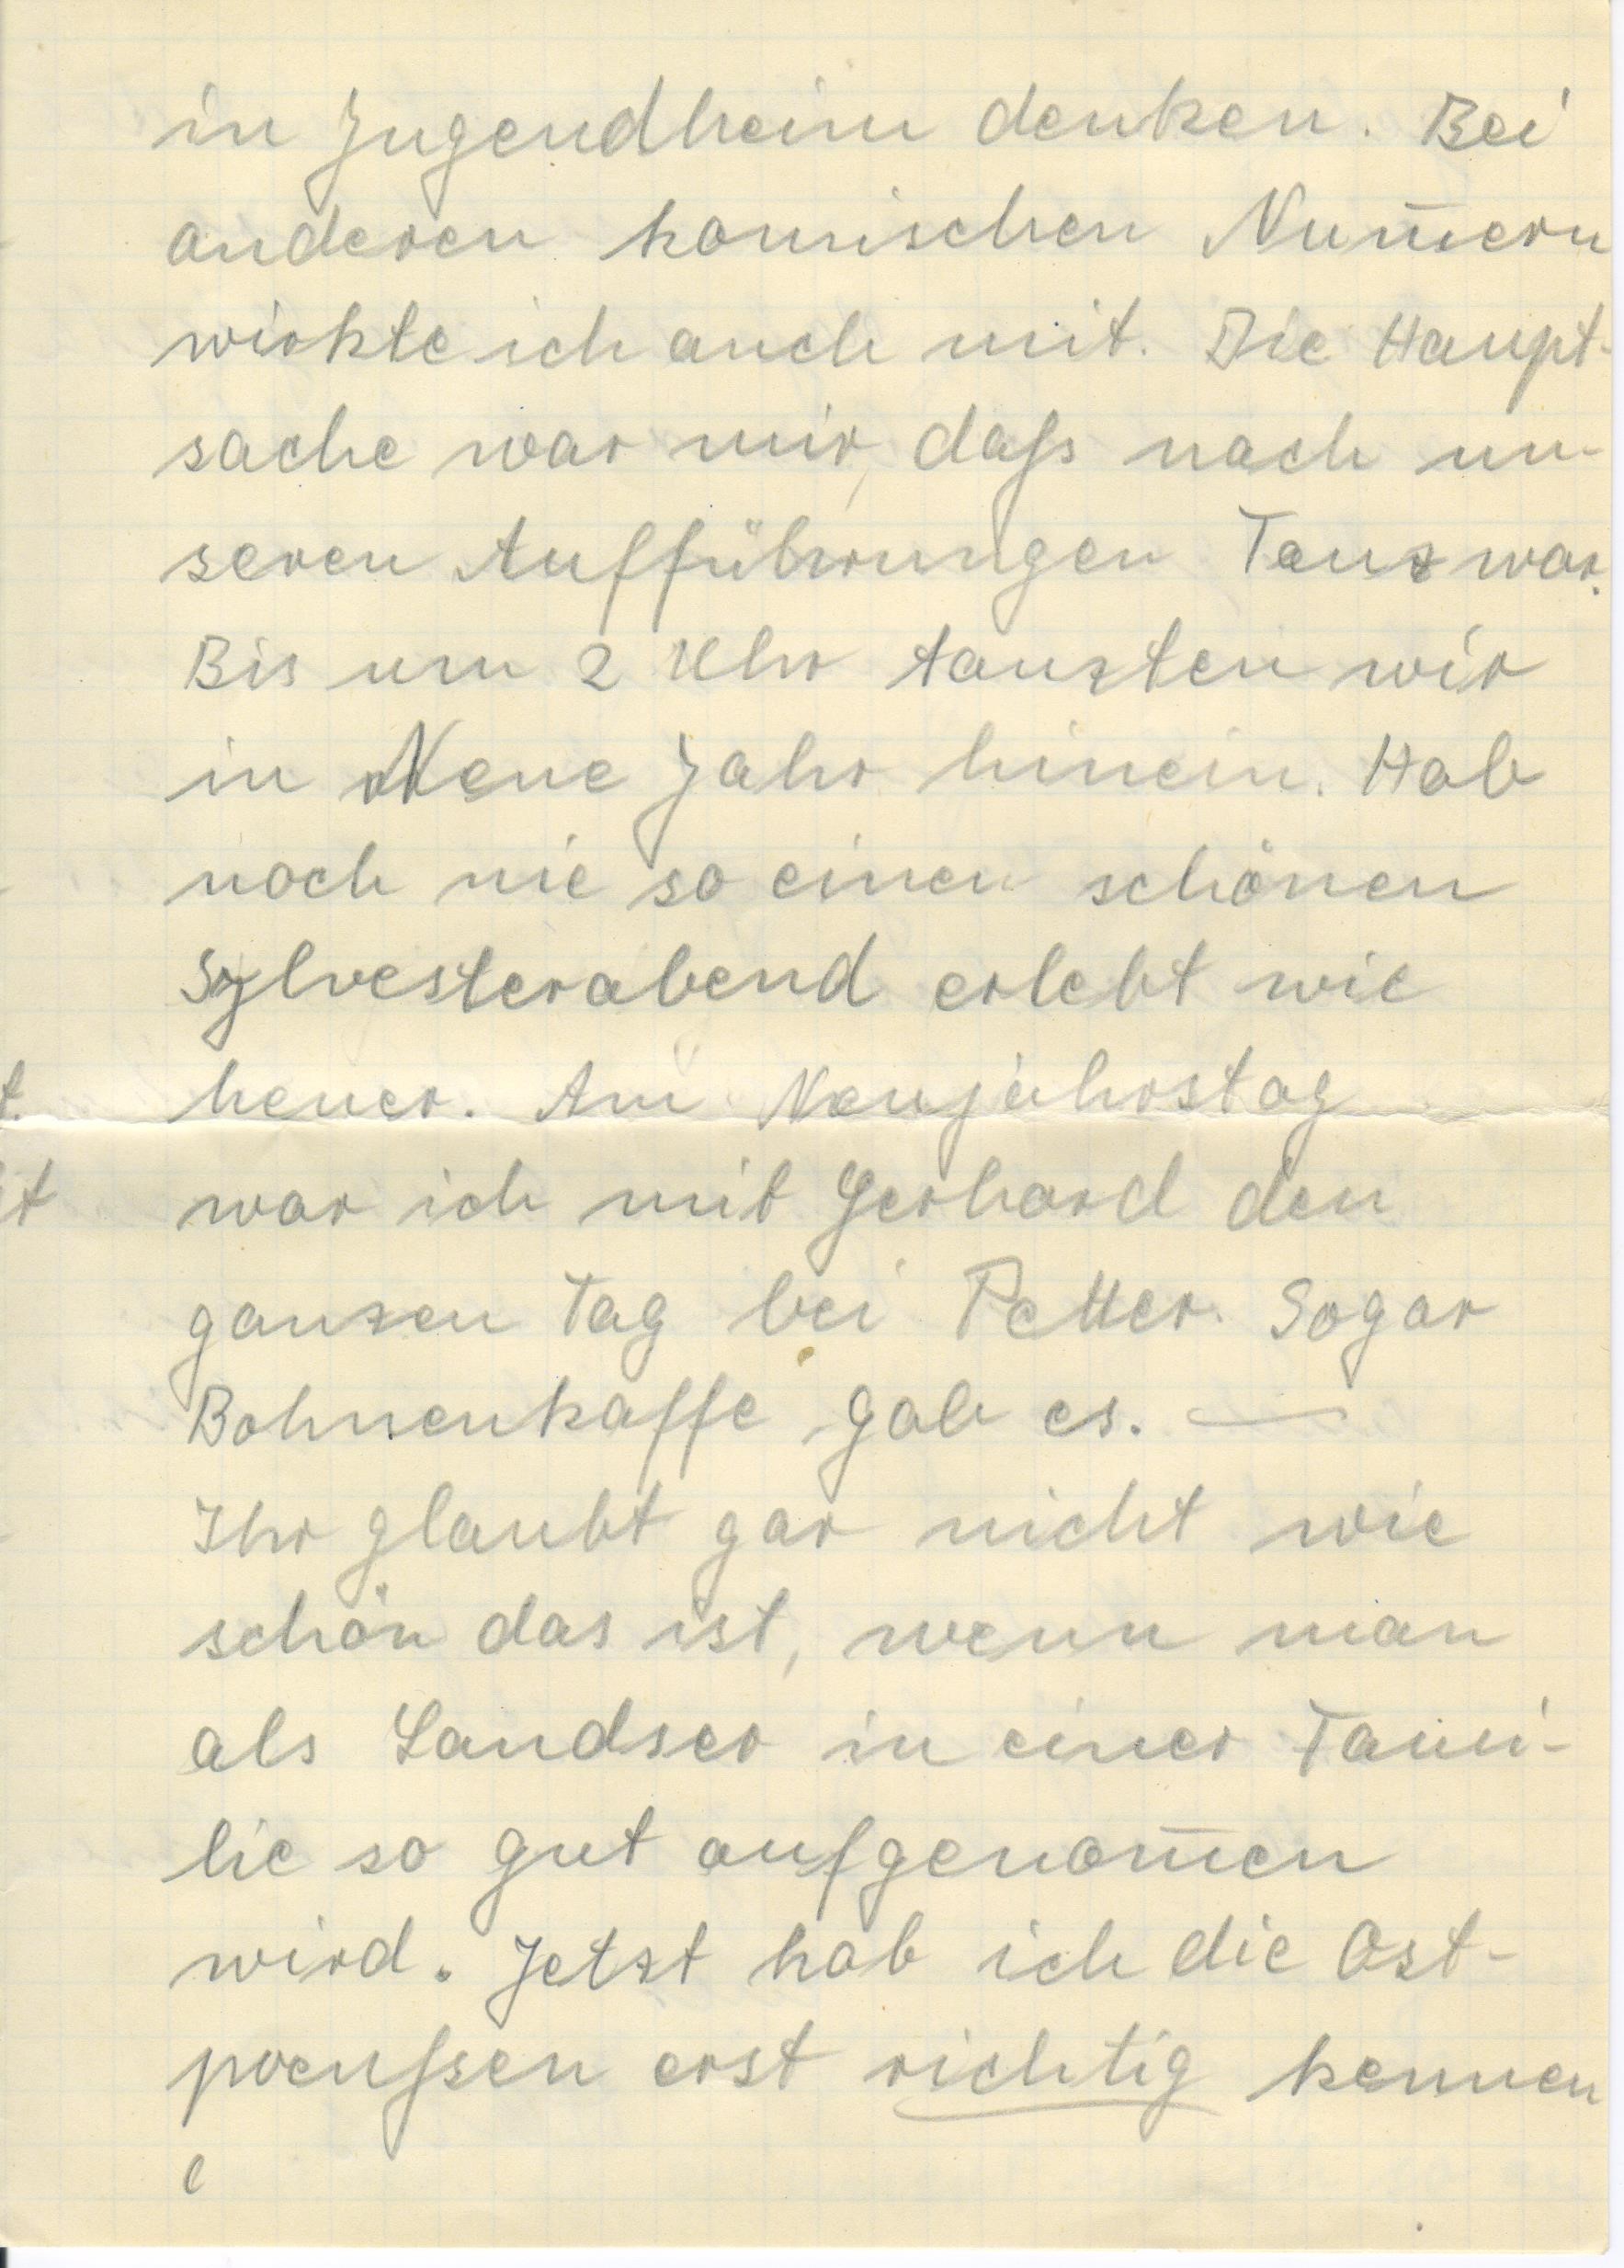 in Jugendheim denken. Bei
anderen komischen Num̅ern
wirkte ich auch mit. Die Haupt-
sache war mir, daß nach un-
seren Aufführungen Tanz war.
Bis um 2 Uhr tanzten wir
in Neue Jahr hinein. Hab
noch nie so einen schönen
Sylvesterabend erlebt wie
t. heuer. Am Neujahrstag
t war ich mit Gerhard den
ganzen Tag bei Petter. Sogar
Bohnenkaffe gab es. —
Ihr glaubt gar nicht wie
schön das ist, wenn man
als Landser in einer Fami-
lie so gut aufgenom̅en
wird. Jetzt hab ich die Ost-
preußen erst richtig kennen